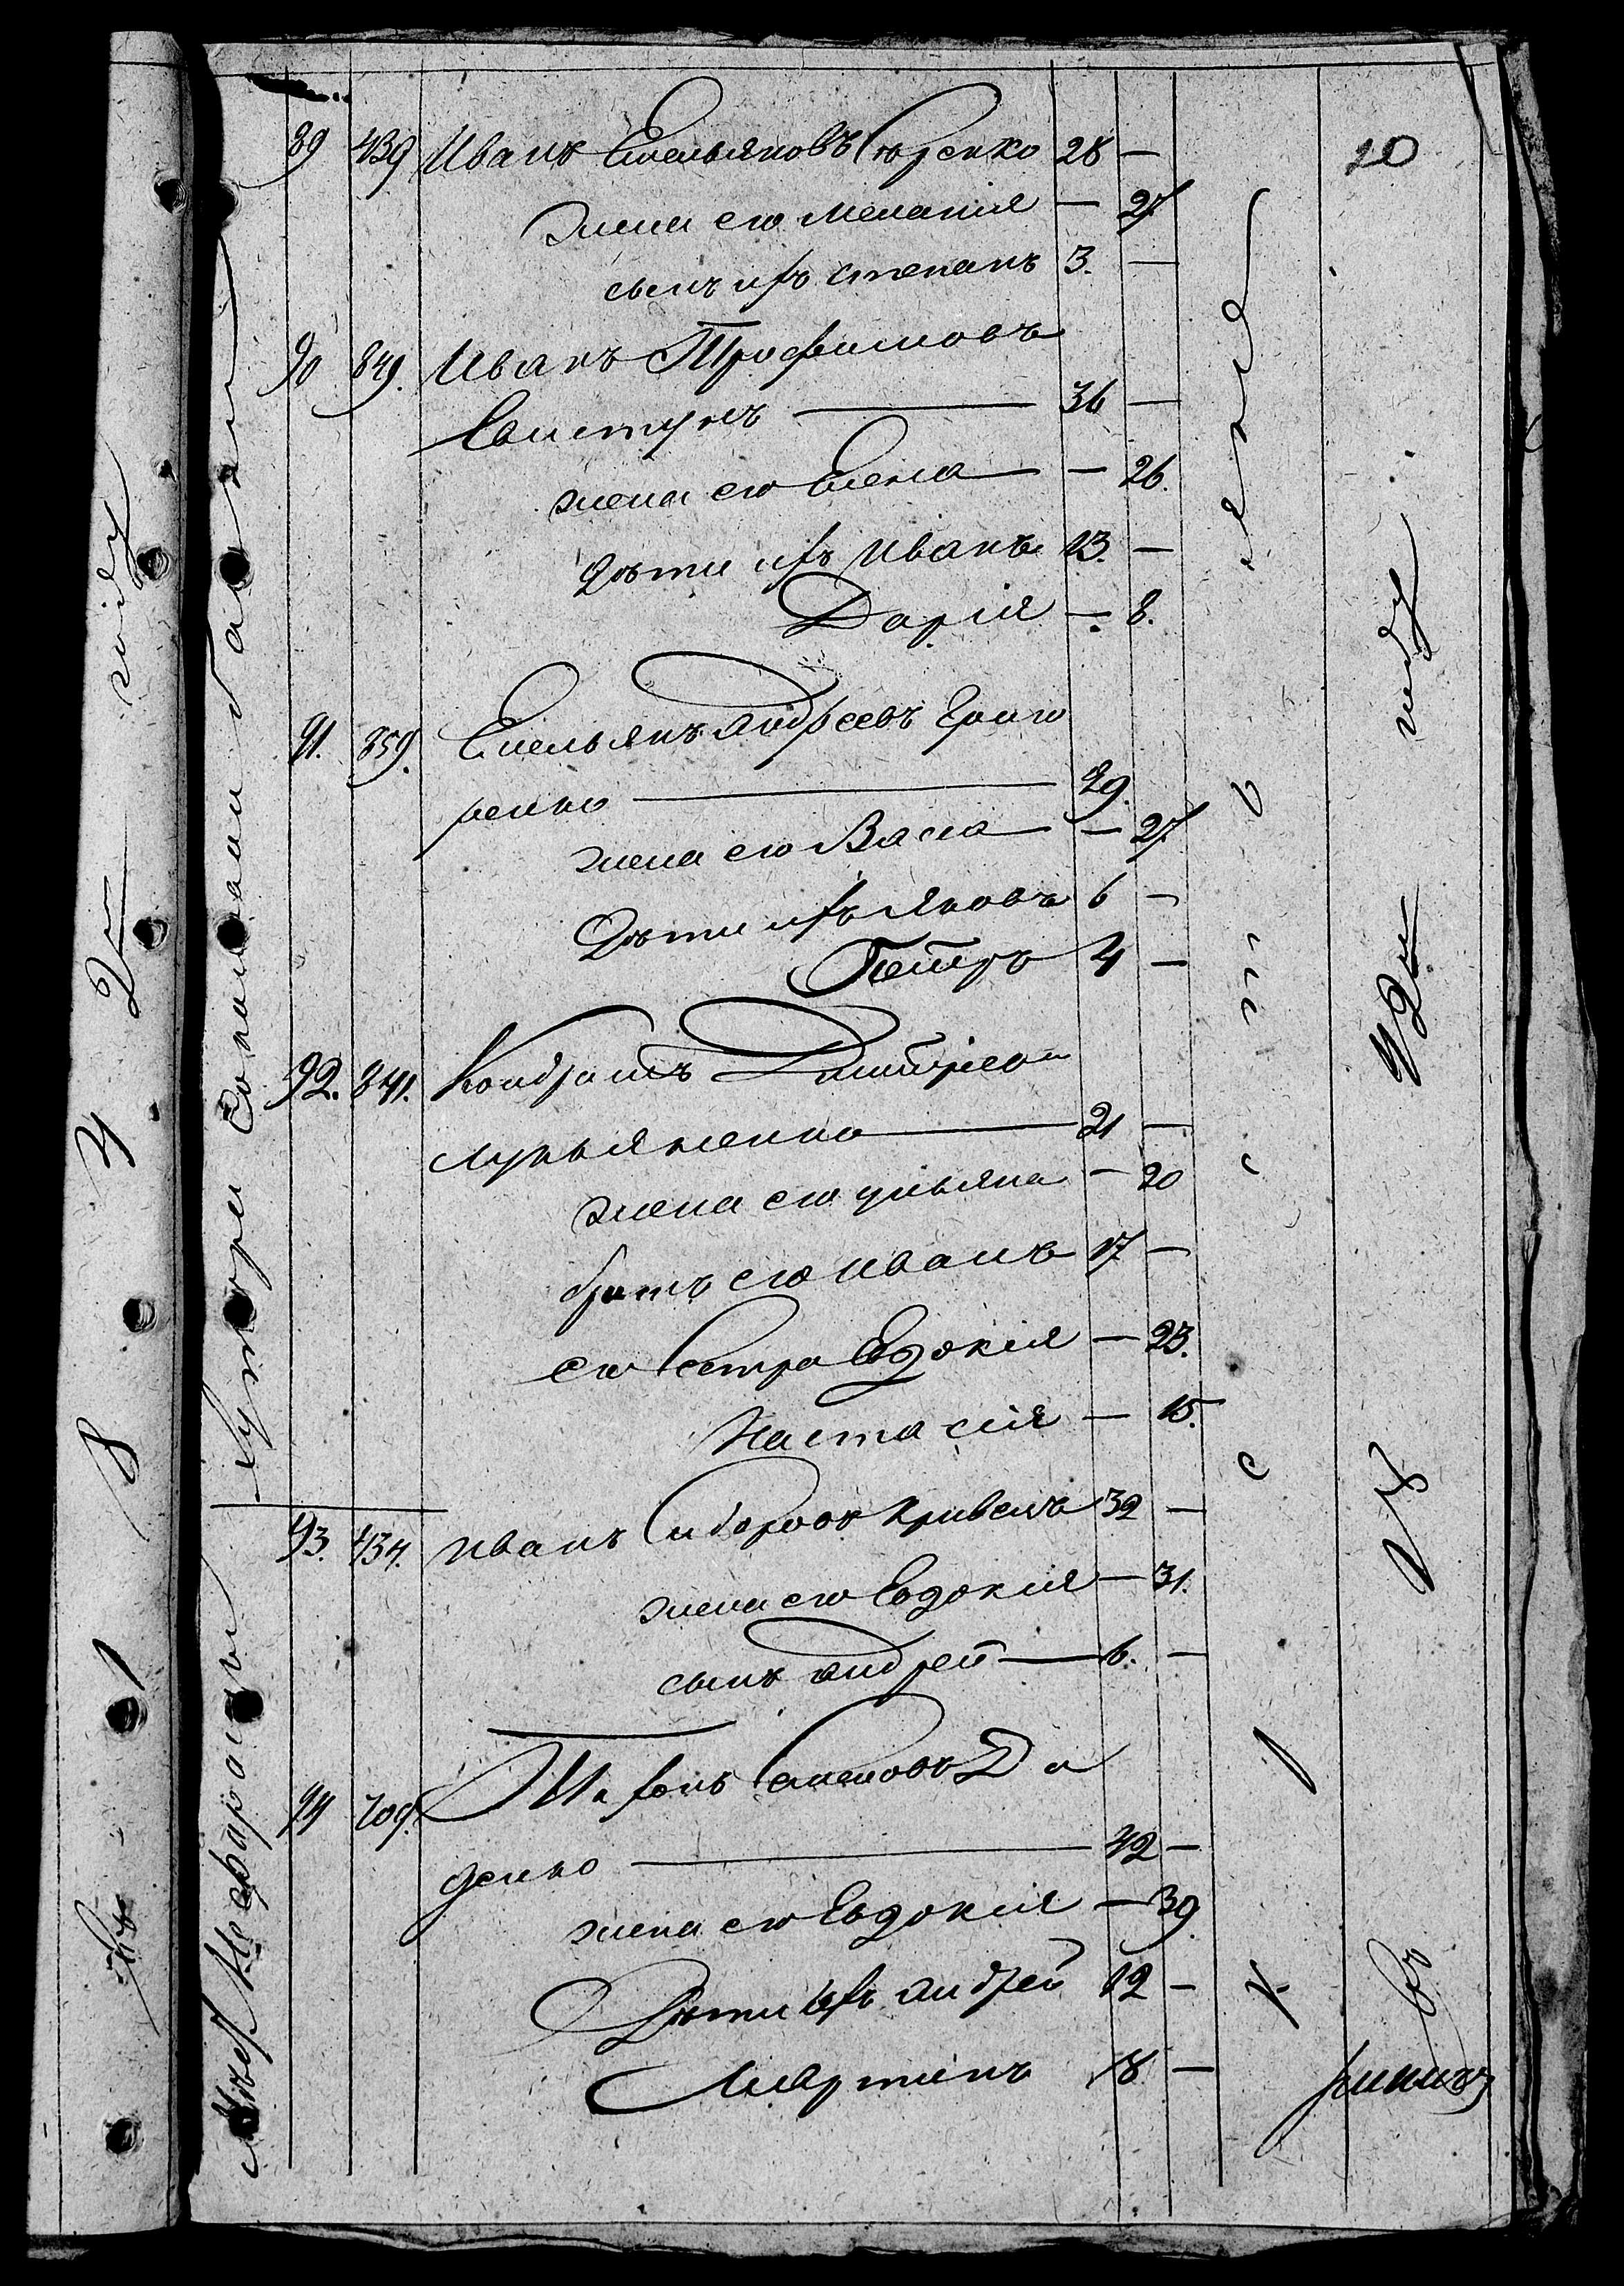 20
89 439 Иванъ Емельяновъ Сѣренко 28 —
жена его Меланія — 27
сынъ ихъ Степанъ 3. —
90 849. Иванъ Трофимовъ
Свистунъ — 36 —
жена его Елена — 26.
дѣти ихъ Иванъ 13. —
Дарія — 8.
91. 859. Емельянъ Андреевъ Григо
ренко — 29.
жена его Васса — 27
Дѣти ихъ Яковъ 6 —
Петръ 4 —
92. 841. Кондратъ Дмитріев
Лукьяненко — 21 —
жена его Ульяна — 20
братъ его Иванъ 17 —
его сестра Евдокія — 23.
Настасія — 15.
93. 434. Иванъ Сидоровъ Кривенъ 32 —
жена его Евдокія — 31.
сынъ Андрей — 6. —
94 709. Семеновъ Да
денко — 42 —
жена его Евдокія — 39.
Дѣти ихъ Андрей 12 —
Мартинъ 18 —
Хуттори
Нехфароши
Крестьянъ
въ
1842м году
1842 году